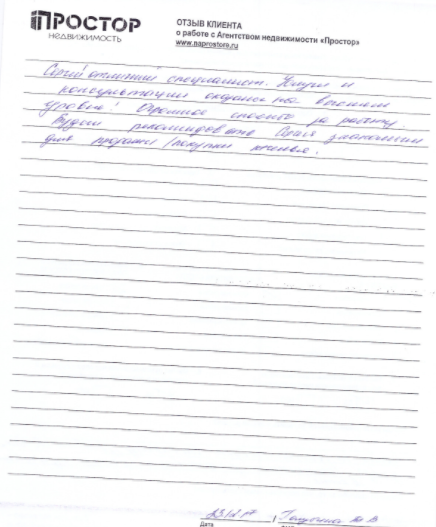 ПРОСТОР
НЕДВИЖИМОСТЬ
ОТЗЫВ КЛИЕНТА
о работе с Агентством недвижимости «Простор»
www.naprostore.ru
отличный специалист. Услуги и
консультации оказаны на высоком
уровне! Огромное спасибо за работу
Будем рекомендовать знакомым
для продажи/покупки жилья.
Дата